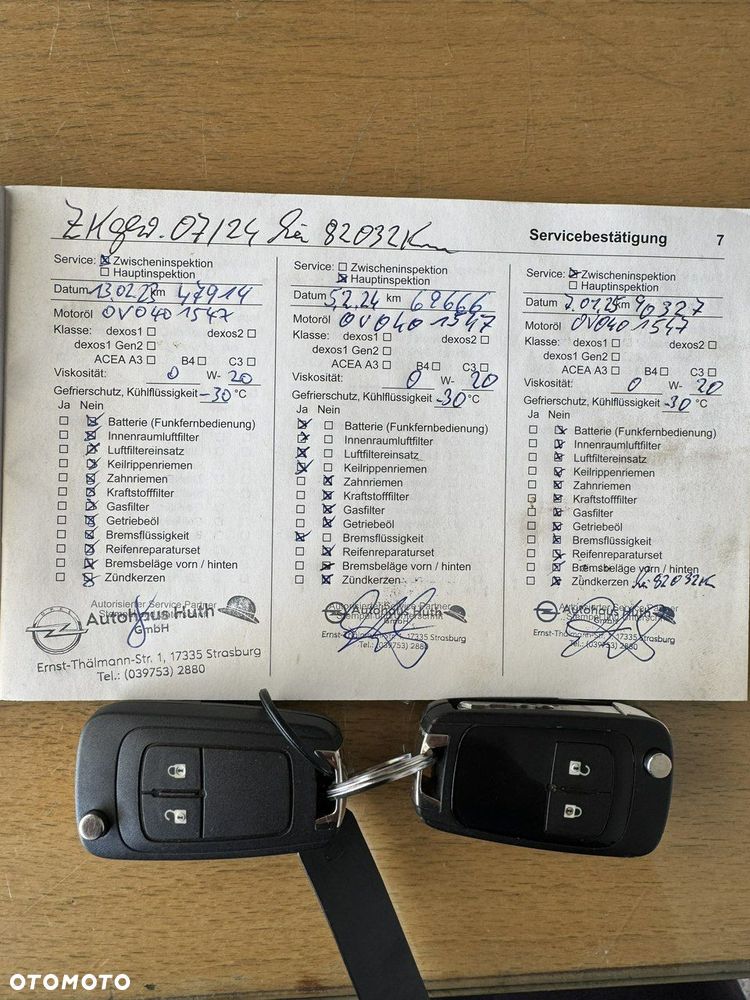 ZKgew. 07/24 bei 82032Km
Servicebestätigung 7
Service: ☒ Zwischeninspektion
☐ Hauptinspektion
Datum 13.02.23 km 47914
Motoröl OV0401547
Klasse: dexos1 ☐ dexos2 ☐
dexos1 Gen2 ☐
ACEA A3 ☐ B4 ☐ C3 ☐
Viskosität: 0 W- 20
Gefrierschutz, Kühlflüssigkeit -30 °C
Ja Nein
☐ ☒ Batterie (Funkfernbedienung)
☐ ☒ Innenraumluftfilter
☐ ☒ Luftfiltereinsatz
☐ ☒ Keilrippenriemen
☐ ☒ Zahnriemen
☐ ☒ Kraftstofffilter
☐ ☒ Gasfilter
☐ ☒ Getriebeöl
☐ ☒ Bremsflüssigkeit
☐ ☒ Reifenreparaturset
☐ ☒ Bremsbeläge vorn / hinten
☐ ☒ Zündkerzen
Autorisierter Service Partner
Autohaus Huth
GmbH
Ernst-Thälmann-Str. 1, 17335 Strasburg
Tel.: (039753) 2880
Service: ☐ Zwischeninspektion
☒ Hauptinspektion
Datum 5.2.24 km 69666
Motoröl OV0401547
Klasse: dexos1 ☐ dexos2 ☐
dexos1 Gen2 ☐
ACEA A3 ☐ B4 ☐ C3 ☐
Viskosität: 0 W- 20
Gefrierschutz, Kühlflüssigkeit -30 °C
Ja Nein
☒ ☐ Batterie (Funkfernbedienung)
☒ ☐ Innenraumluftfilter
☒ ☐ Luftfiltereinsatz
☒ ☐ Keilrippenriemen
☐ ☒ Zahnriemen
☐ ☒ Kraftstofffilter
☐ ☒ Gasfilter
☐ ☒ Getriebeöl
☒ ☐ Bremsflüssigkeit
☐ ☒ Reifenreparaturset
☐ ☒ Bremsbeläge vorn / hinten
☐ ☒ Zündkerzen
Autorisierter Service Partner
Autohaus Huth
GmbH
Ernst-Thälmann-Str. 1, 17335 Strasburg
Tel.: (039753) 2880
Service: ☒ Zwischeninspektion
☐ Hauptinspektion
Datum 7.01.25 km 90327
Motoröl OV0401547
Klasse: dexos1 ☐ dexos2 ☐
dexos1 Gen2 ☐
ACEA A3 ☐ B4 ☐ C3 ☐
Viskosität: 0 W- 20
Gefrierschutz, Kühlflüssigkeit -30 °C
Ja Nein
☐ ☒ Batterie (Funkfernbedienung)
☐ ☒ Innenraumluftfilter
☐ ☒ Luftfiltereinsatz
☐ ☒ Keilrippenriemen
☐ ☒ Zahnriemen
☐ ☒ Kraftstofffilter
☐ ☒ Gasfilter
☐ ☒ Getriebeöl
☐ ☒ Bremsflüssigkeit
☐ ☒ Reifenreparaturset
☐ ☒ Bremsbeläge vorn / hinten
☐ ☒ Zündkerzen bei 82032K
Autorisierter Service Partner
Autohaus Huth
GmbH
Ernst-Thälmann-Str. 1, 17335 Strasburg
Tel.: (039753) 2880
OTOMOTO